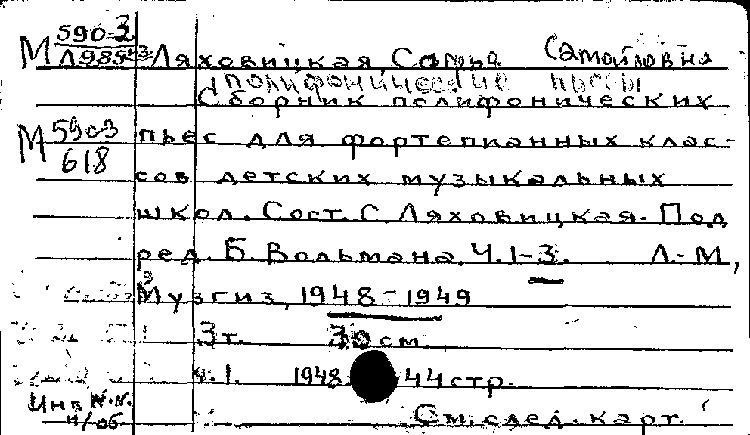 М 590-3
Л985 Ляховицкая, Софья Самойловна
полифонические пьесы
Сборник полифонических
М 5903
618
пьес для фортепианных клас-
сов детских музыкальных
школ. Сост. С. Ляховицкая. Под
ред. Б. Вольмана. Ч. 1-3. Л.-М.,
Музгиз, 1948-1949
3 т. 30 см
ч. 1. 1948. 44 стр.
Инв N.N.
н/об
См. след. карт.